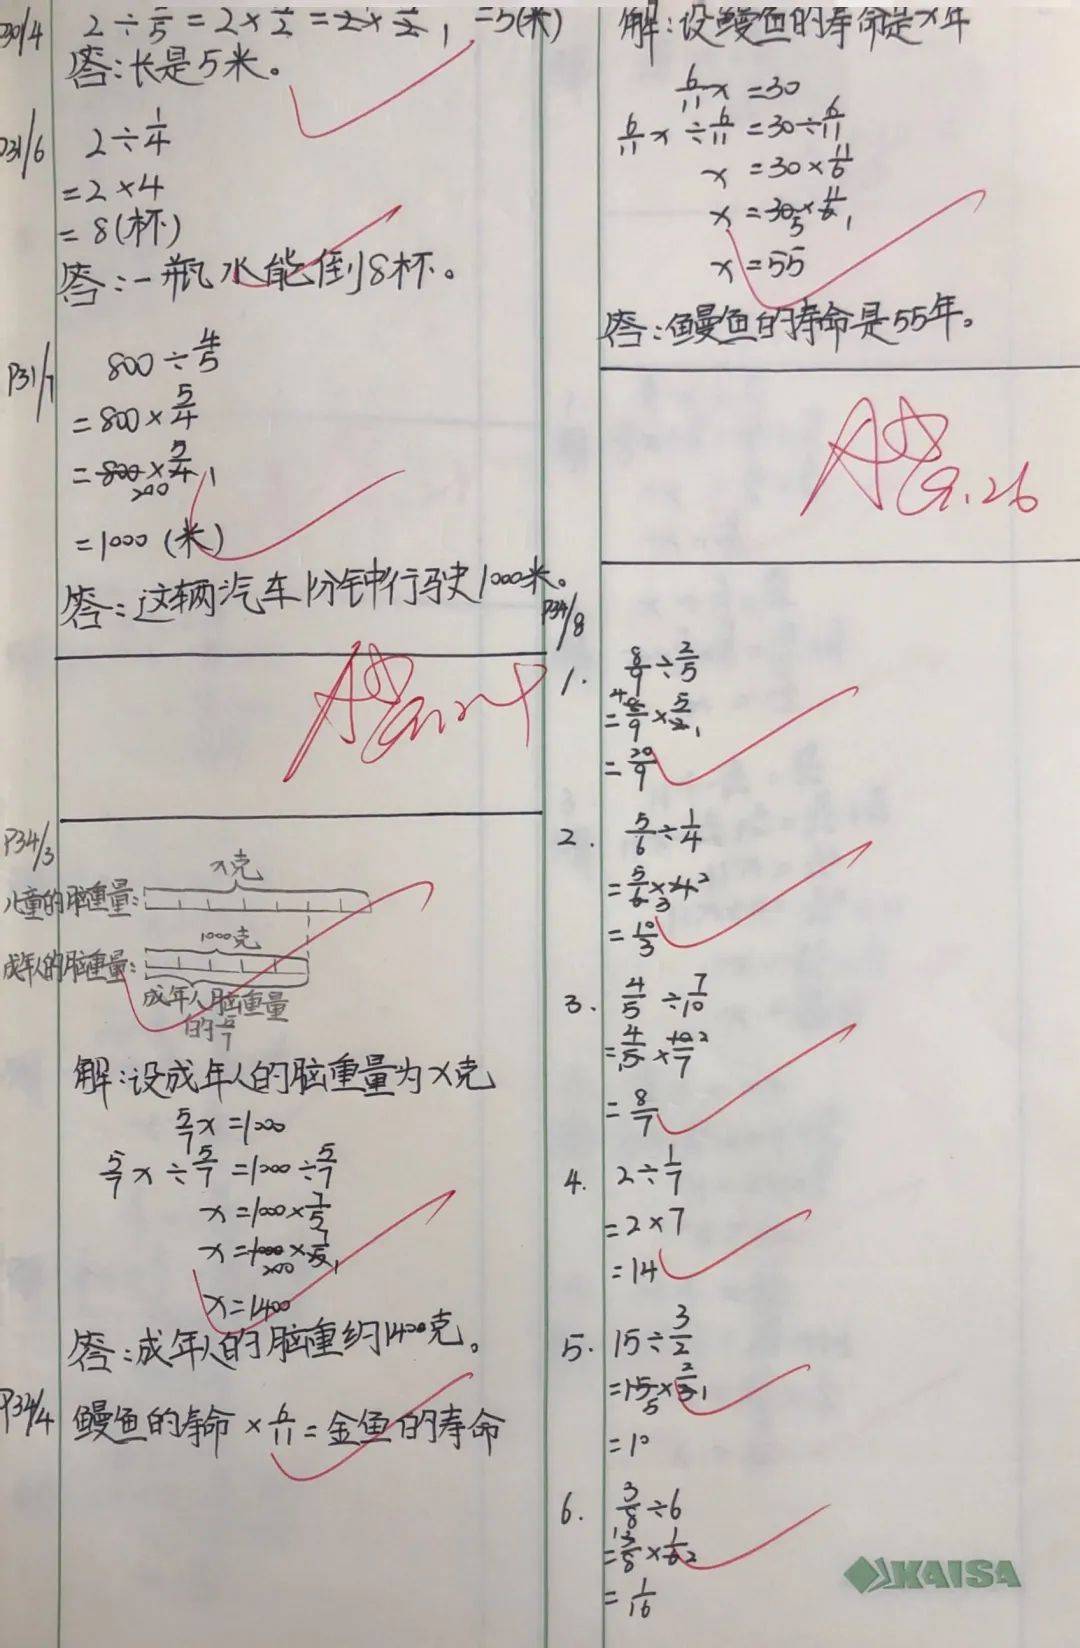 P30/4
2÷2/5=2×5/2=2×5/2 1 =5(米)
答:长是5米。
P31/6
2÷1/4
=2×4
=8(杯)
答:一瓶水能倒8杯。
P31/7
800÷4/5
=800×5/4
=800×5/4 1
200
=1000(米)
答:这辆汽车1分钟行驶1000米。
A 9.24
P34/3
x克
儿童的脑重量:
1000克
成年人的脑重量:
成年人脑重量
的5/7
解:设成年人的脑重量为x克
5/7x=1000
5/7x÷5/7=1000÷5/7
x=1000×7/5
x=1000×7/5 1
200
x=1400
答:成年人的脑重约1400克。
P34/4
鳗鱼的寿命×6/11=金鱼的寿命
解:设鳗鱼的寿命是x年
6/11x=30
6/11x÷6/11=30÷6/11
x=30×11/6
x=30×11/6 1
5
x=55
答:鳗鱼的寿命是55年。
A 9.26
P34/8
1. 8/9÷2/5
=4 8/9×5/2 1
=20/9
2. 5/6÷1/4
=5/6×4 2
3
=10/3
3. 4/5÷7/10
=4/5×10/7 2
1
=8/7
4. 2÷1/7
=2×7
=14
5. 15÷3/2
=15×2/3 1
5
=10
6. 3/8÷6
=1 3/8×1/6 2
=1/16
KAISA